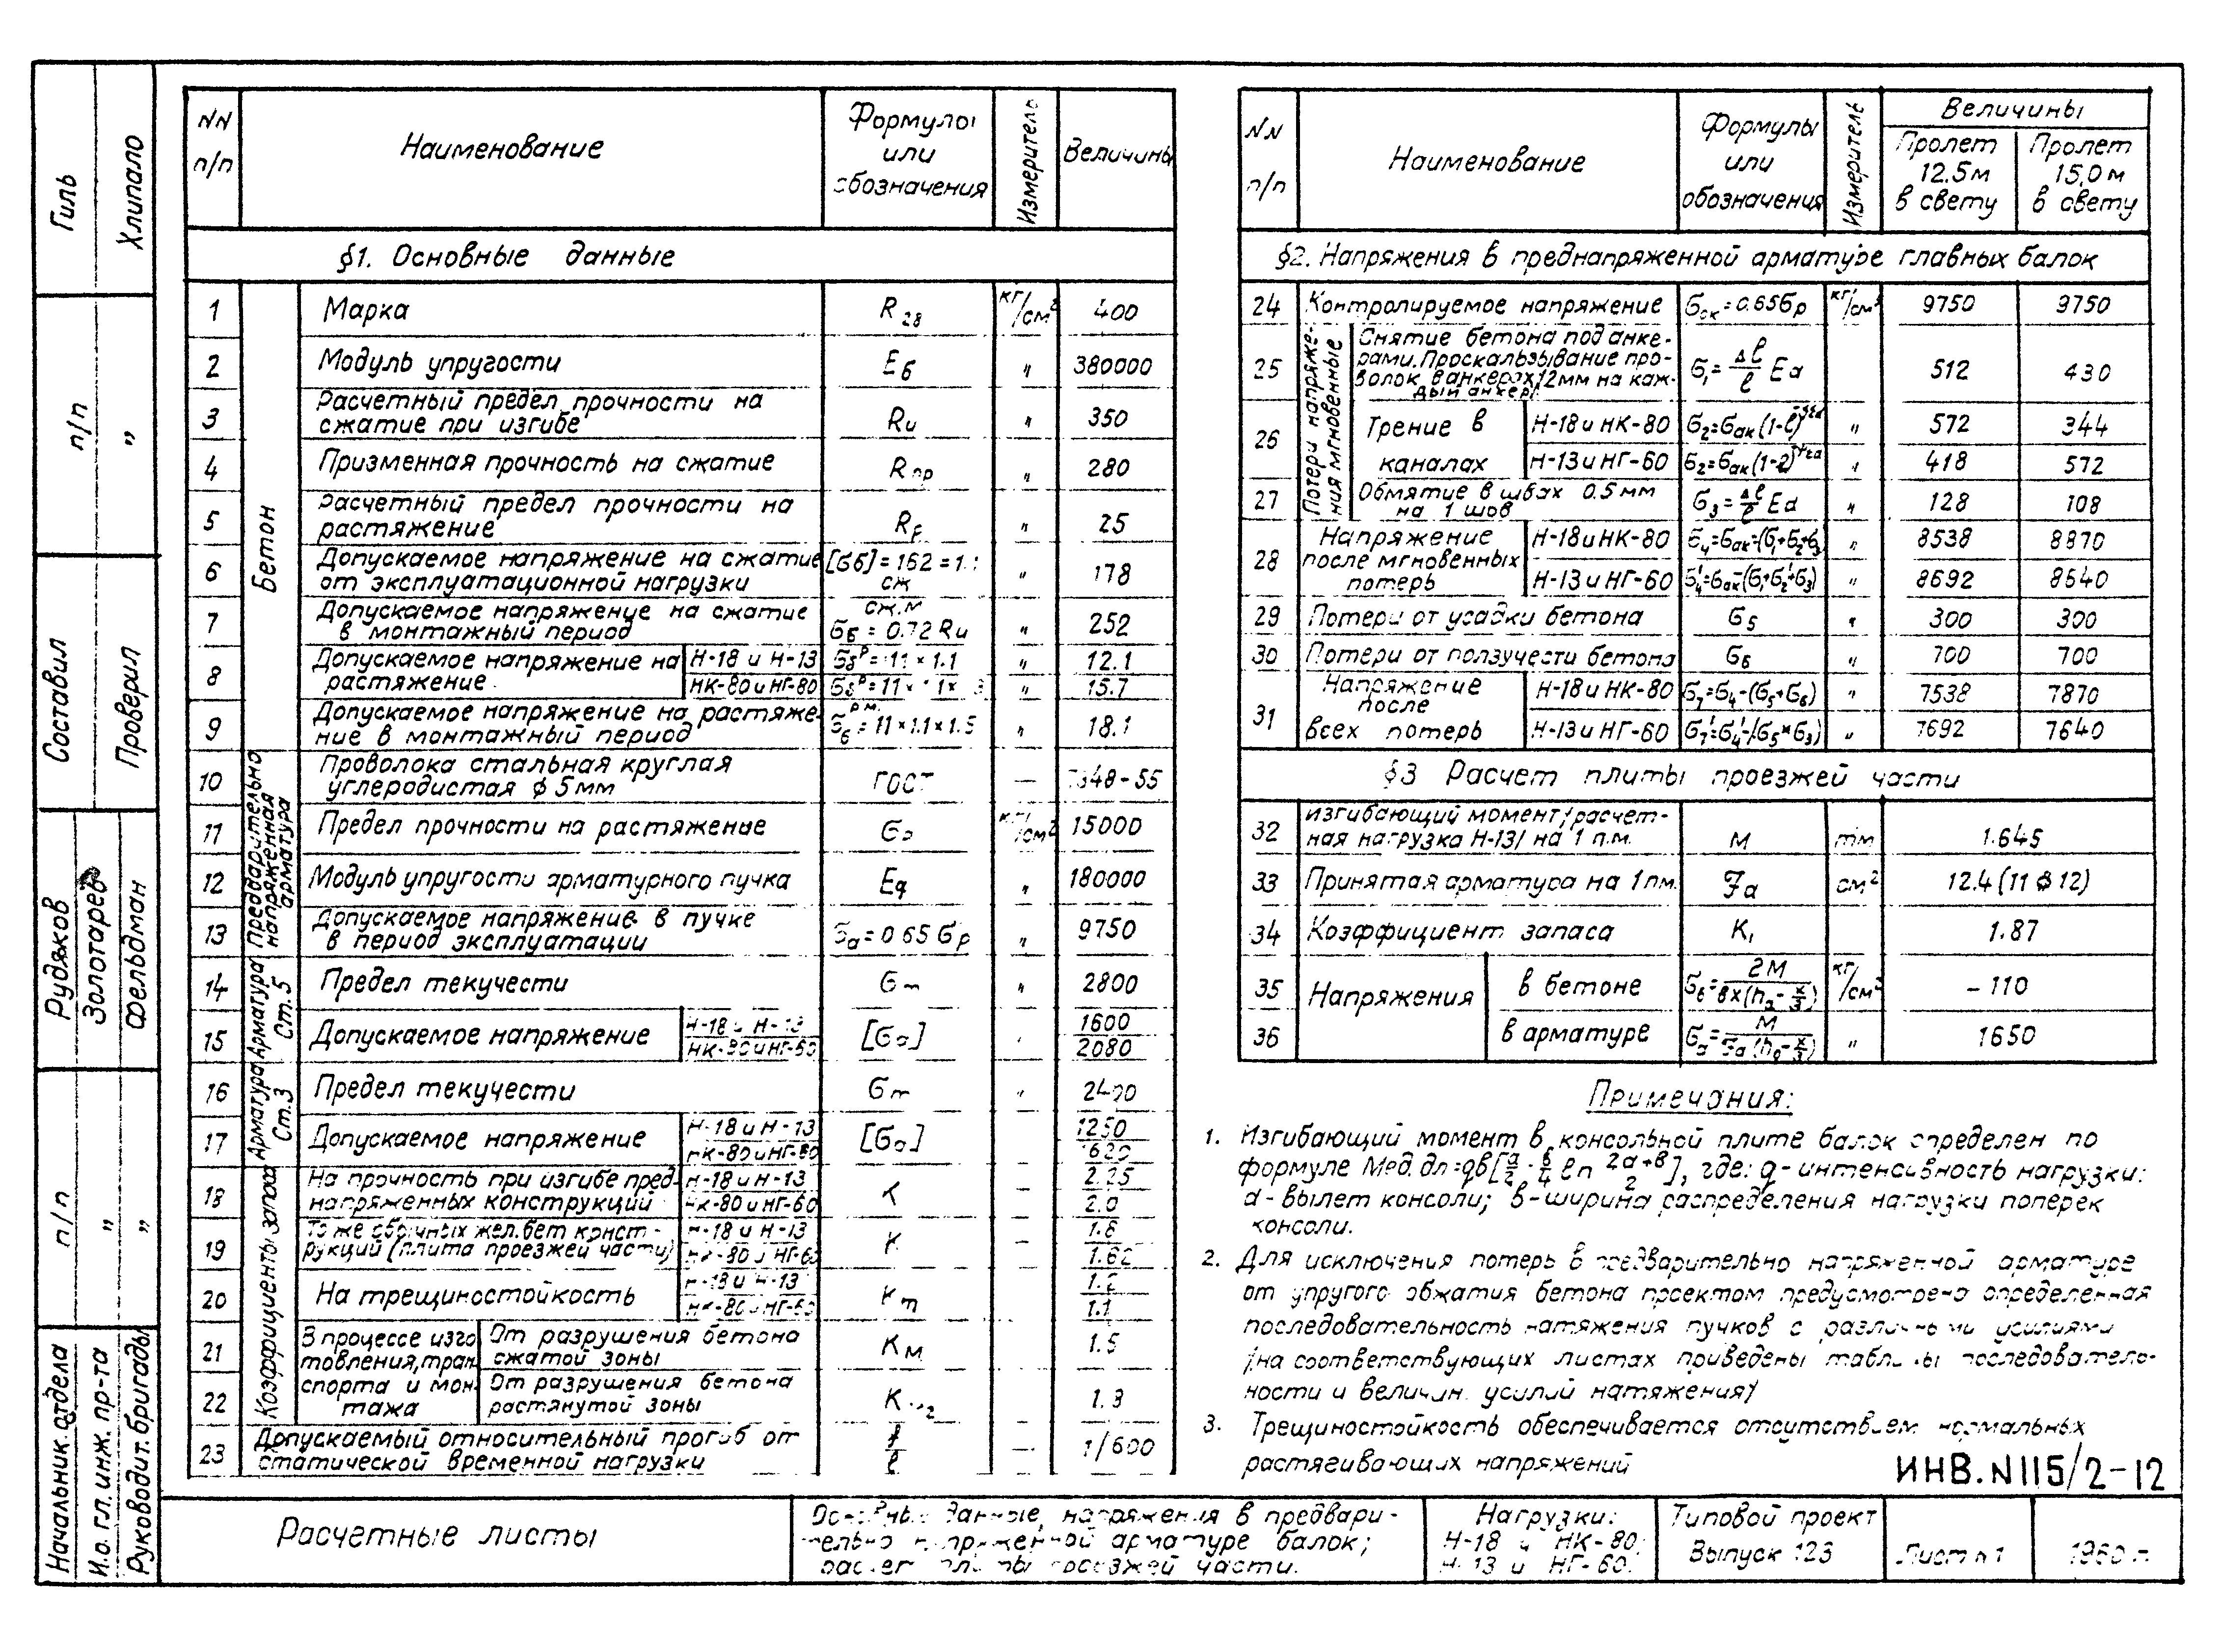 NN п/п | Наименование | Формулы или обозначения | Измеритель | Величины
§1. Основные данные
Бетон
1 | Марка | R28 | кг/см² | 400
2 | Модуль упругости | Eб | " | 380000
3 | Расчетный предел прочности на сжатие при изгибе | Rи | " | 350
4 | Призменная прочность на сжатие | Rпр | " | 280
5 | Расчетный предел прочности на растяжение | Rр | " | 25
6 | Допускаемое напряжение на сжатие от эксплуатационной нагрузки | [бб]сж = 162 = | " | 178
7 | Допускаемое напряжение на сжатие в монтажный период | Gб сж.м = 0.72 Rи | " | 252
8 | Допускаемое напряжение на растяжение | Н-18 и Н-13 | Gбᵖ = 11 × 1.1 | " | 12.1
НК-80 и НГ-60 | Gбᵖ = 11 × | " | 15.7
9 | Допускаемое напряжение на растяжение в монтажный период | Gб р.м. = 11 × 1.1 × 1.5 | " | 18.1
Предварительно напряженная арматура
10 | Проволока стальная круглая углеродистая ϕ 5 мм | ГОСТ | — | 348-55
11 | Предел прочности на растяжение | Gр | кг/см² | 15000
12 | Модуль упругости арматурного пучка | Eа | " | 180000
13 | Допускаемое напряжение в пучке в период эксплуатации | Gа = 0.65 Gр | " | 9750
Арматура Ст.5
14 | Предел текучести | Gт | " | 2800
15 | Допускаемое напряжение | Н-18 и Н-13 | [Gа] | " | 1600
НК-80 и НГ-60 | 2080
Арматура Ст.3
16 | Предел текучести | Gт | " | 2400
17 | Допускаемое напряжение | Н-18 и Н-13 | [Gа] | 1250
НК-80 и НГ-60 | 1620
Коэффициенты запаса
18 | На прочность при изгибе преднапряженных конструкций | Н-18 и Н-13 | K | — | 2.25
НК-80 и НГ-60 | — | 2.0
19 | То же обычных жел.бет конструкций (плита проезжей части) | Н-18 и Н-13 | K | — | 1.8
НК-80 и НГ-60 | — | 1.62
20 | На трещиностойкость | Н-18 и Н-13 | Kт | — | 1.2
НК-80 и НГ-60 | — | 1.1
21 | В процессе изготовления, транспорта и монтажа | От разрушения бетона сжатой зоны | Kм | — | 1.5
22 | От разрушения бетона растянутой зоны | K | — | 1.3
23 | Допускаемый относительный прогиб от статической временной нагрузки | f/ℓ | — | 1/600
NN п/п | Наименование | Формулы или обозначения | Измеритель | Величины
Пролет 12.5 м в свету | Пролет 15.0 м в свету
§2. Напряжения в преднапряженной арматуре главных балок
24 | Контролируемое напряжение | Gак = 0.65Gр | кг/см² | 9750 | 9750
Потери напряжения мгновенные
25 | Снятие бетона под анкерами. Проскальзывание проволок в анкерах /2мм на каждый анкер/ | G₁ = Δℓ/ℓ Eа | 512 | 430
26 | Трение в каналах | Н-18 и НК-80 | G₂=Gак(1-e) | " | 572 | 344
Н-13 и НГ-60 | G₂=Gак(1-e) | " | 418 | 572
27 | Обмятие в швах 0.5 мм на 1 шов | G₃ = Δℓ/ℓ Eа | " | 128 | 108
28 | Напряжение после мгновенных потерь | Н-18 и НК-80 | G₄=Gак-(G₁+G₂+G₃) | " | 8538 | 8870
Н-13 и НГ-60 | G₄'=Gак-(G₁+G₂'+G₃) | " | 8692 | 8640
29 | Потери от усадки бетона | G₅ | " | 300 | 300
30 | Потери от ползучести бетона | G₆ | " | 700 | 700
31 | Напряжение после всех потерь | Н-18 и НК-80 | G₇=G₄-(G₅+G₆) | " | 7538 | 7870
Н-13 и НГ-60 | G₇'=G₄'-(G₅+G₃) | " | 7692 | 7640
§3 Расчет плиты проезжей части
32 | Изгибающий момент /расчетная нагрузка Н-13/ на 1 п.м. | М | тм | 1.645
33 | Принятая арматура на 1 пм. | Fа | см² | 12.4 (11 ϕ 12)
34 | Коэффициент запаса | K₁ | 1.87
35 | Напряжения | в бетоне | Gб = 2М / вx(hа - x/3) | кг/см² | - 110
36 | в арматуре | Gа = М / Fа(h₀ - x/3) | " | 1650
Примечания:
1. Изгибающий момент в консольной плите балок определен по
формуле Мед.дл=qв[a/2 - в/4 ℓn 2a+в/2], где: q - интенсивность нагрузки:
а - вылет консоли; в - ширина распределения нагрузки поперек
консоли.
2. Для исключения потерь в предварительно напряженной арматуре
от упругого обжатия бетона проектом предусмотрена определенная
последовательность натяжения пучков с различными усилиями
/на соответствующих листах приведены таблицы последователь-
ности и величин усилий натяжения/
3. Трещиностойкость обеспечивается отсутствием нормальных
растягивающих напряжений
ИНВ.N115/2-12
Расчетные листы
Основные данные, напряжения в предвари-
тельно напряженной арматуре балок;
расчет плиты проезжей части.
Нагрузки:
Н-18 и НК-80;
Н-13 и НГ-60.
Типовой проект
Выпуск 123
Лист N 1
1960 г.
Гиль
Хлипало
п/п
"
Составил
Проверил
Рудяков
Золотарев
Фельдман
п/п
"
"
Начальник отдела
И.о. гл. инж. пр-та
Руководит. бригады